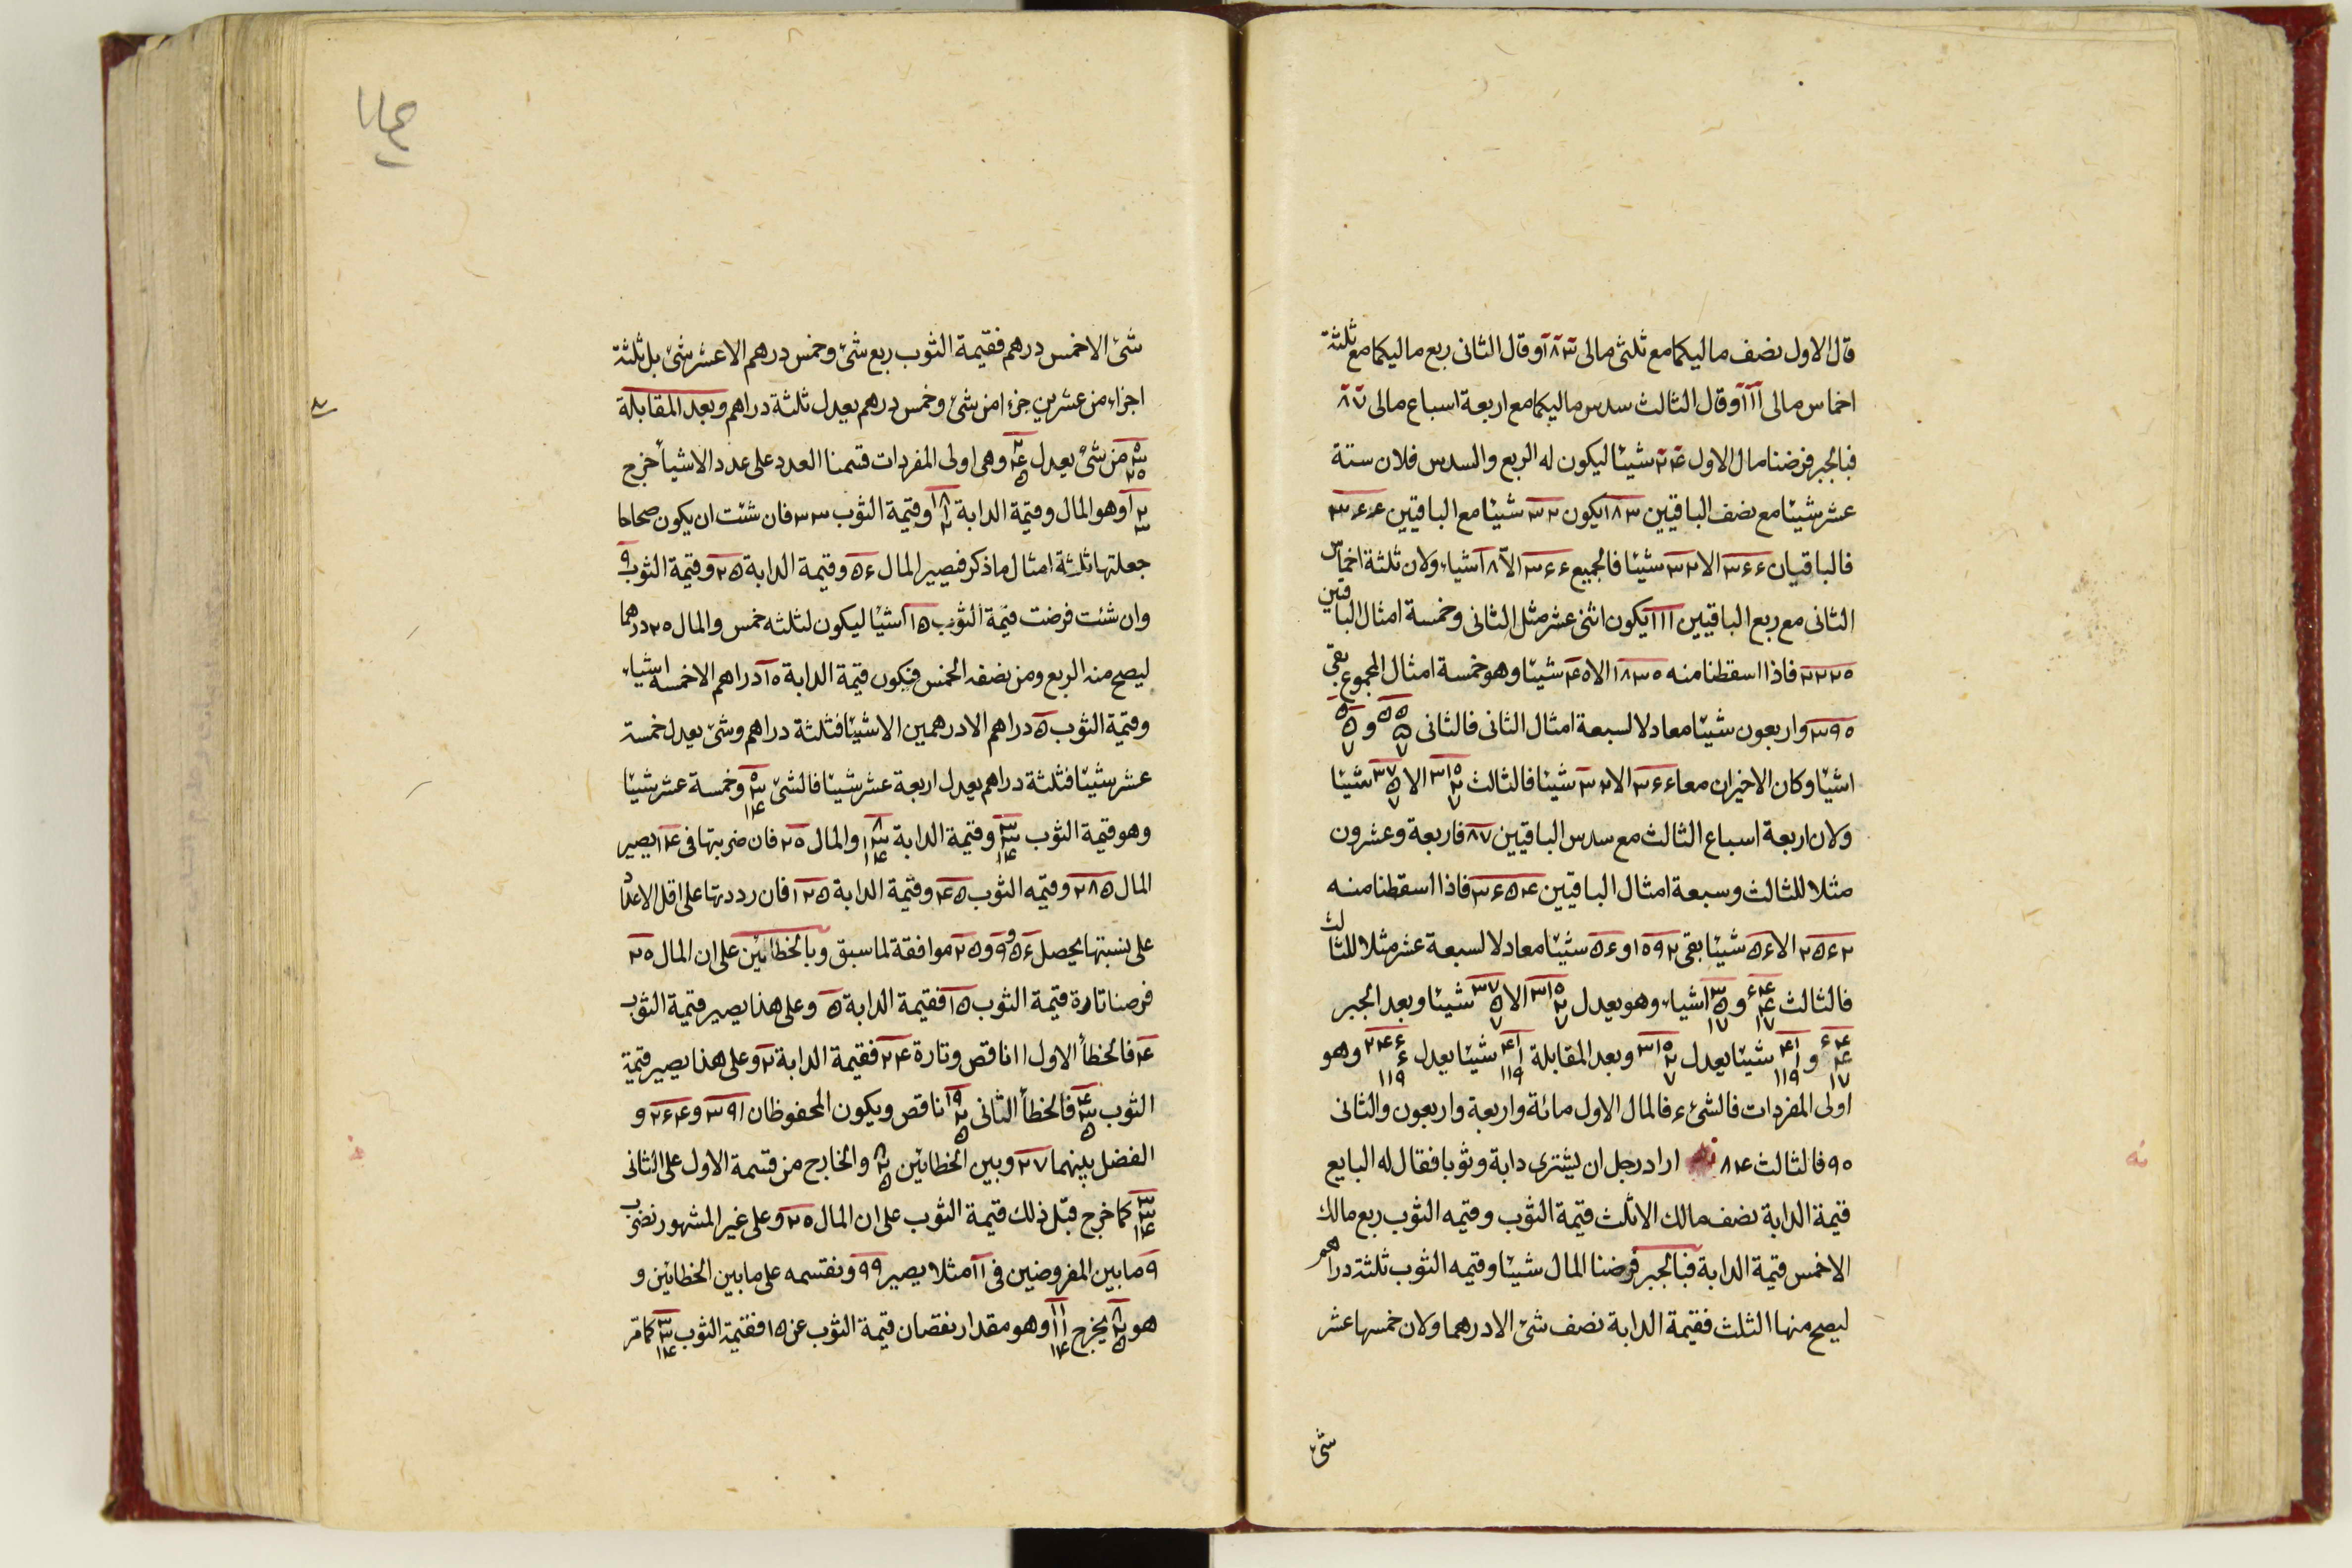 قال الاول نصف ماليكما مع ثلثى مالى ١٨٣ وقال الثانى ربع ماليكما مع ثلثة
اخماس مالى ١١١ وقال الثالث سدس ماليكما مع اربعة اسباع مالى ٨٧
فبالجبر فرضنا مال الاول ٢٤ شيئا ليكون له الربع والسدس فلان ستة
عشر شيئا مع نصف الباقيين ١٨٣ يكون ٣٢ شيئا مع الباقيين ٣٦٦
فالباقيان ٣٦٦ الا ٣٢ شيئا فالجميع ٣٦٦ الا ٨ اشياء ولان ثلثة اخماس
الثانى مع ربع الباقيين ١١١ يكون اثنى عشر مثل الثانى وخمسة امثال الباقين
٢٢٢٠ فاذا اسقطنا منه ١٨٣٠ الا ٤٠ شيئا وهو خمسة امثال المجموع بقى
٣٩٠ واربعون شيئا معادلا لسبعة امثال الثانى فالثانى ٥٥ ٥ ٧ و ٥ ٥ ٧
اشيا وكان الاخيران معا ٣٦٦ الا ٣٢ شيئا فالثالث ٣١٠ ٢ ٧ الا ٣٧ ٥ ٧ شيئا
ولان اربعة اسباع الثالث مع سدس الباقيين ٨٧ فاربعة وعشرون
مثلا للثالث وسبعة امثال الباقين ٣٦٥٤ فاذا اسقطنا منه
٢٥٦٢ الا ٥٦ شيئا بقى ١٠٩٢ و ٥٦ شيئا معادلا لسبعة عشر مثلا للثالث
فالثالث ٦٤ ٤ ١٧ و ٣ ٥ ١٧ اشياء وهو يعدل ٣١٠ ٢ ٧ الا ٣٧ ٥ ٧ شيئا وبعد الجبر
٦٤ ٤ ١٧ و ٤١ ١ ١١٩ شيئا يعدل ٣١٠ ٢ ٧ وبعد المقابلة ٤١ ١ ١١٩ شيئا يعدل ٢٤٦ ٦ ١١٩ وهو
اولى المفردات فالشئ ٦ فالمال الاول مائة واربعة واربعون والثانى
٩٠ فالثالث ٨٤ اراد رجل ان يشترى دابة وثوبا فقال له البايع
قيمة الدابة نصف مالك الا ثلث قيمة الثوب وقيمه الثوب ربع مالك
الا خمس قيمة الدابة فبالجبر فرضنا المال شيئا وقيمه الثوب ثلثة دراهم
ليصح منها الثلث فقيمة الدابة نصف شئ الا درهما ولان خمسها عشر
شئ
شئ الا خمس درهم فقيمة الثوب ربع شئ وخمس درهم الا عشر شئ بل ثلثة
اجزاء من عشرين جزءا من شئ وخمس درهم يعدل ثلثة دراهم وبعد المقابلة
٠ ٣ ٢٠ من شئ يعدل ٢ ٤ ٥ وهى اولى المفردات قسمنا العدد على عدد الاشيا خرج
وهو المال وقيمة الدابة ٨ ١ ٣ وقيمة الثوب ٣ فان شئت ان يكون صحاحا
جعلتها ثلثة امثال ما ذكر فيصير المال ٥٦ وقيمة الدابة ٢٥ وقيمة الثوب ٩
وان شئت فرضت قيمة الثوب ١٥ شيئا ليكون لثلثه خمس والمال ٢٠ درهما
ليصح منه الربع ومن نصفه الخمس فتكون قيمة الدابة ١٠ دراهم الا خمسة اشياء
وقيمة الثوب ٥ دراهم الا درهمين الا شيئا فثلثة دراهم وشئ يعدل خمسة
عشر شيئا فثلثة دراهم يعدل اربعة عشر شيئا فالشئ ٠ ٣ ١٤ وخمسة عشر شيئا
وهو قيمة الثوب ٣ ٣ ١٤ وقيمة الدابة ٨ ١٣ ١٤ والمال ٢٠ فان ضربتها فى ١٤ يصير
المال ٢٨٠ وقيمه الثوب ٤٥ وقيمة الدابة ١٢٥ فان رددتها على اقل الاعداد
على نسبتها يحصل ٥٦ و ٩ و ٢٥ موافقة لما سبق وبالخطائين على ان المال ٢٠
فرضنا تارة قيمة الثوب ١٥ فقيمة الدابة ٥ وعلى هذا يصير قيمة الثوب
٤ فالخطأ الاول ١١ ناقص وتارة ٢٤ فقيمة الدابة ٢ وعلى هذا يصير قيمة
الثوب ٤ ٣ ٥ فالخطأ الثانى ١٩ ٢ ٥ ناقص ويكون المحفوظان ٣٩١ و ٢٦٤ و
الفضل بينهما ٢٧ وبين الخطائين ٨ ٢ ٥ والخارج من قسمة الاول على الثانى
٣ ٣ ١٤ كما خرج قبل ذلك قيمة الثوب على ان المال ٢٠ وعلى غير المشهور نضرب
٩ ما بين المفروضين فى ١١ مثلا يصير ٩٩ ونقسمه على ما بين الخطائين و
هو ٨ ٢ ٥ يخرج ١١ ١١ ١٤ وهو مقدار نقصان قيمة الثوب عن ١٥ فقيمة الثوب ٣ ٣ ١٤ كما مر